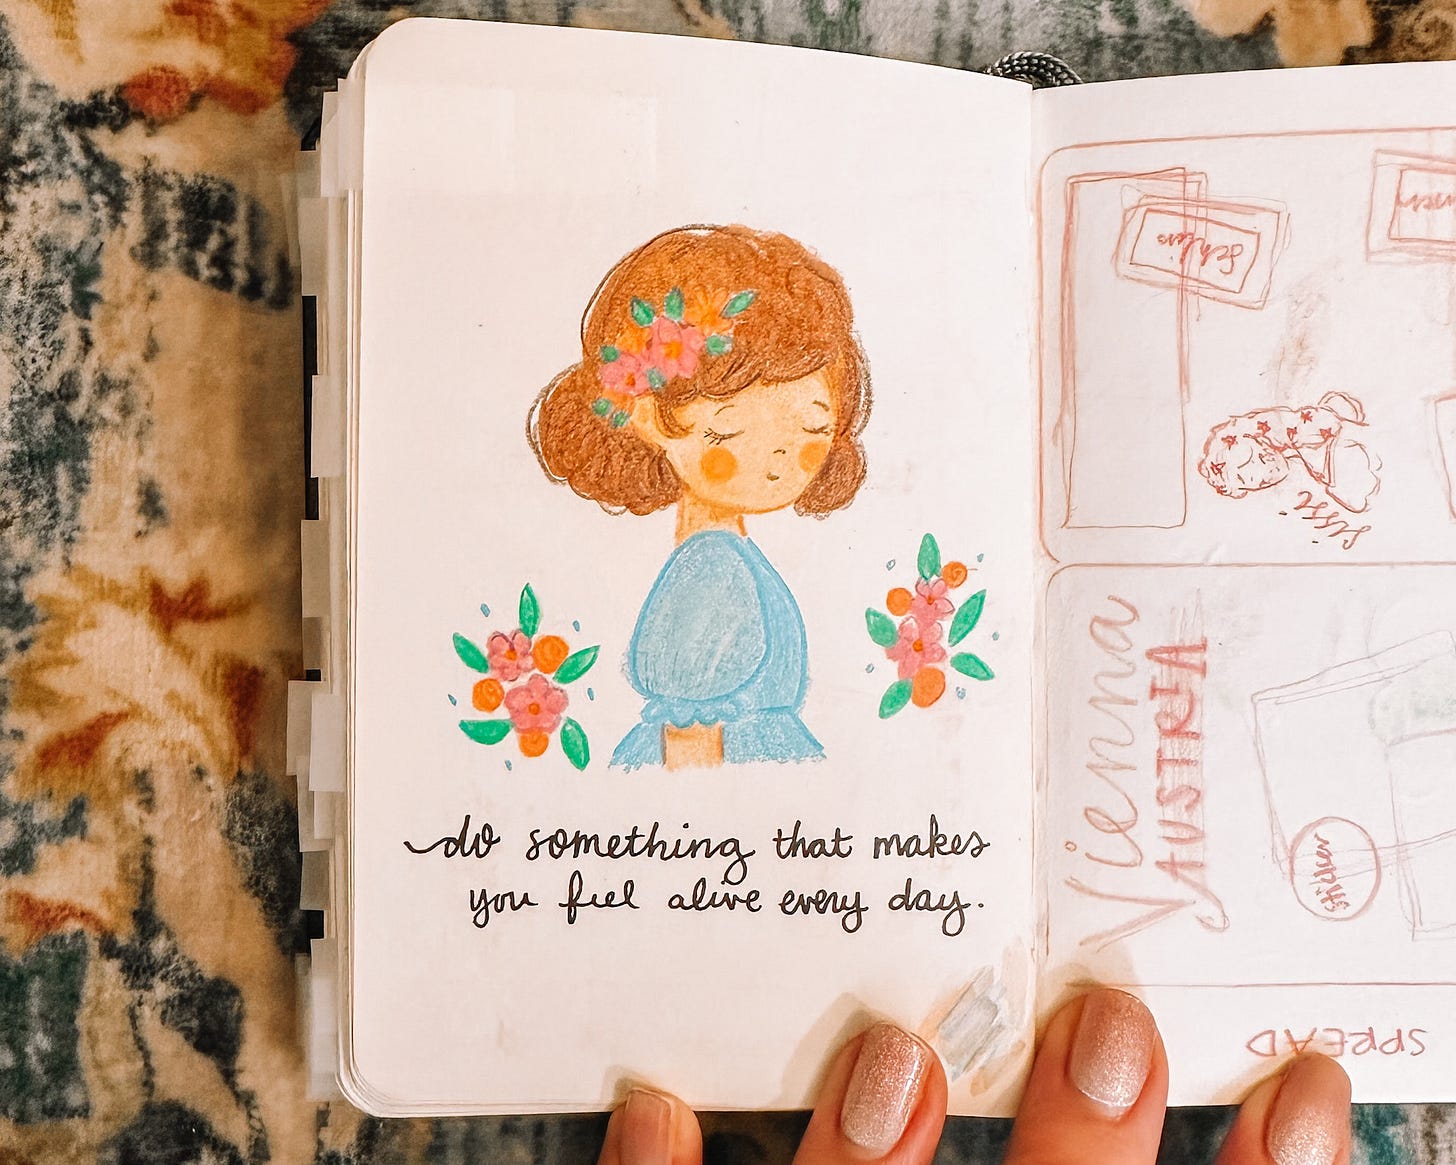 do something that makes
you feel alive every day.
Vienna
AUSTRIA
Sissi
sticker
SPREAD